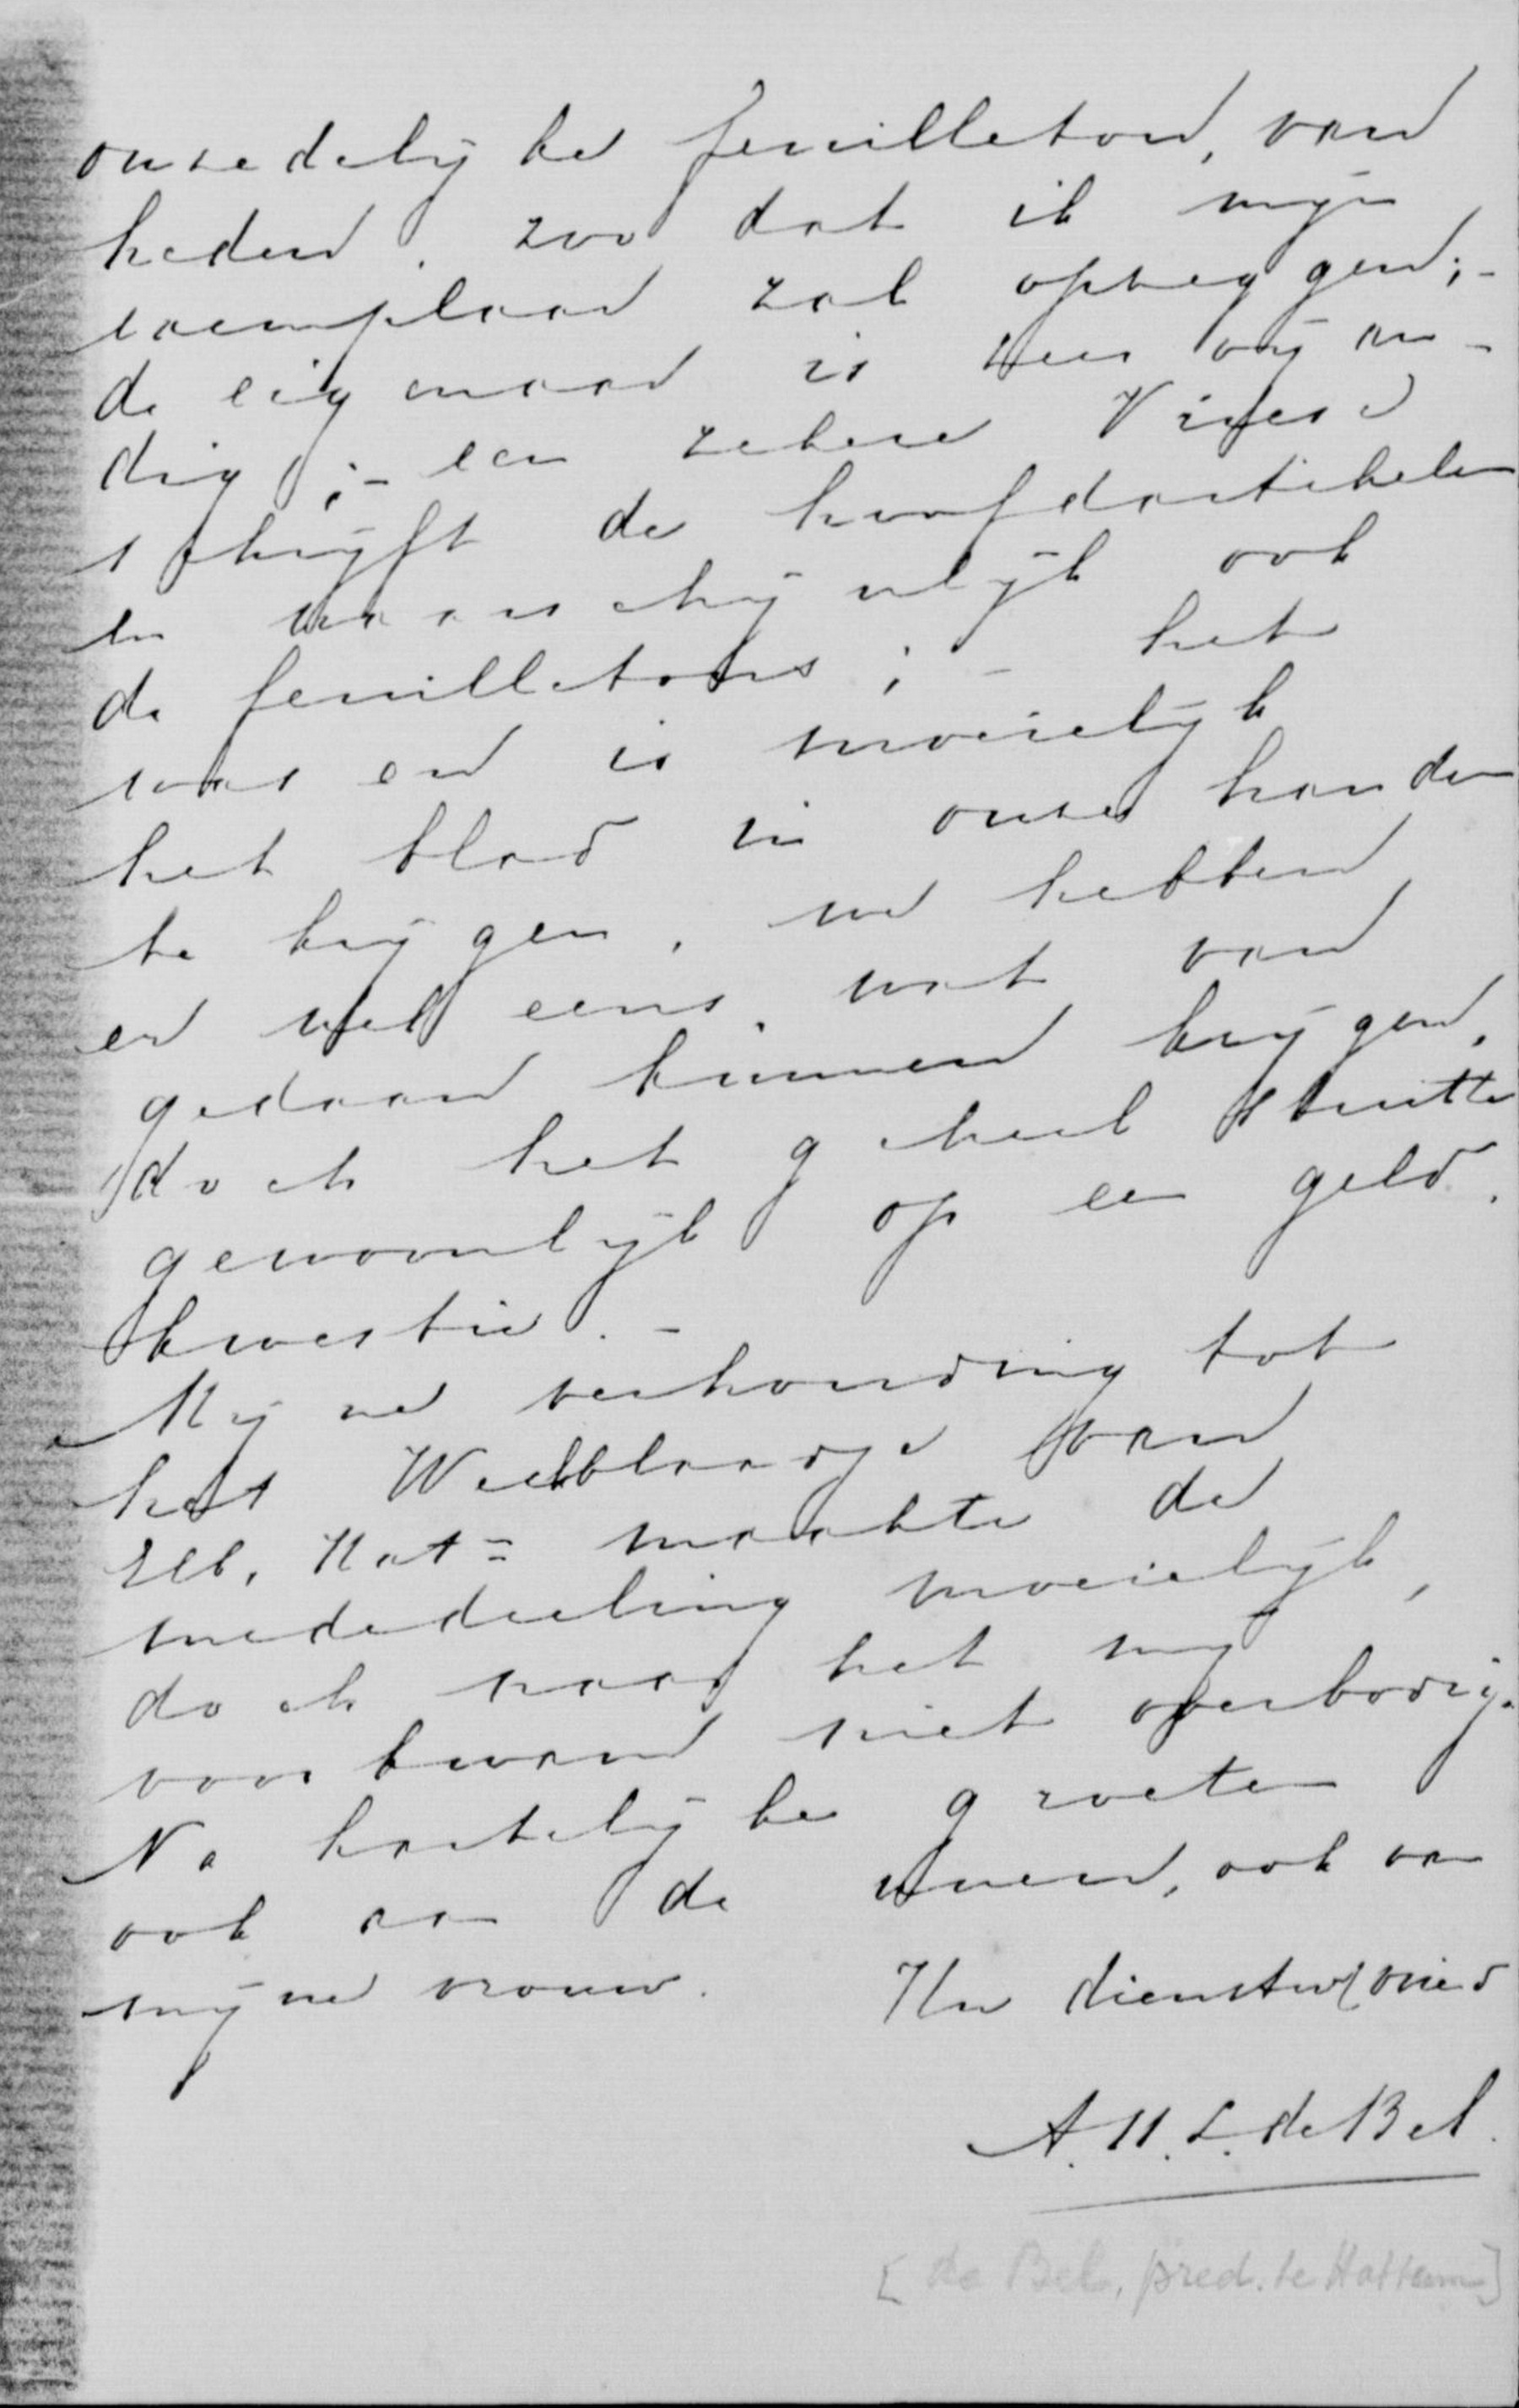 onzedelijke feuilleton, van
heden. zoo dat ik mijn
exemplaar zal opzeggen;-
de eigenaar is zeer vijan-
dig;- een zekere Viness
schrijft de hoofdartikelen
en waarschijnlijk ook
de feuilletons;- het
is moeielijk
het blad in onze handen
te krijgen, we hebben
er wel eens wat van
gedaan kunnen krijgen,
doch het geheel stuitte
gewoonlijk op een geld.
kwestie.-
Mijne verhouding tot
het Weekblaadje van
Elb, Hat= maakte de
mededeeling moeielijk,
doch naar het mij
voorkwam niet overbodig.
Na hartelijke groeten
ook aan de uwen, ook van
mijne vrouw. Uw dienstw vriend
A. H. L. de Bel.
[de Bel, pred. te Hattem]